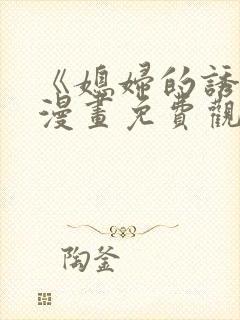 《媳婦的誘
漫畫免費觀
陶釜